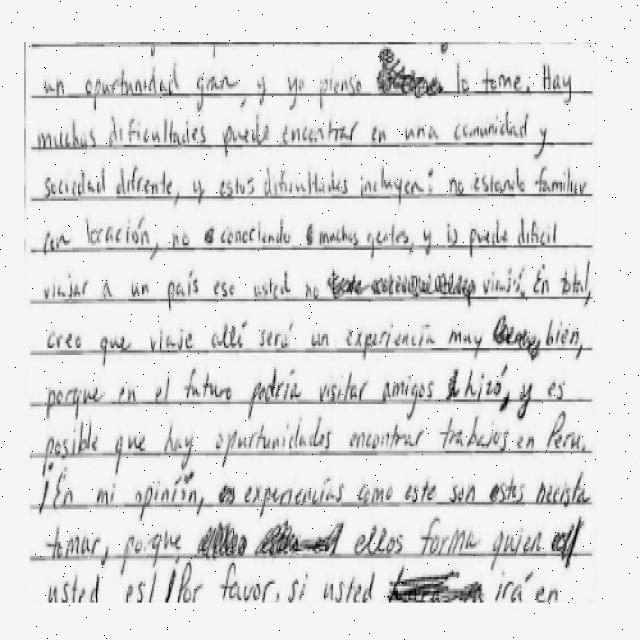 un oportunidad gran, y yo pienso lo tome. Hay
muchas dificultades puede encontrar en una comunidad y
sociedad difrente, y estos dificultades incluyen: no estando familiar
con locación, no conociendo muchos gentes, y is puede dificil
viajar a un país ese usted no viajó. En total,
creo que viaje allí será un experiencia muy bien,
porque en el futuro podría visitar amigos hizó, y es
posible que hay oportunidades encontrar trabajos en Peru.
¡En mi opinión, experiencias como este son estos necista
tomar, porque ellos forma quien
usted es! ¡Por favor, si usted irá en